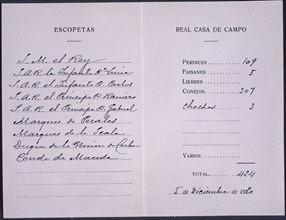 ESCOPETAS
S. M. el Rey
S. A. R. la Infanta D.
S. A. R. el Infante D. Carlos
S. A. R. el Principe D. Raniero
S. A. R. el Principe D. Gabriel
Marques de Perales
Marques de la Scala
Duque de la Union de Cuba
Conde de Maceda
REAL CASA DE CAMPO
PERDICES 109
FAISANES 5
LIEBRES
CONEJOS 307
Chochas 3
VARIOS
TOTAL 424
5 de Diciembre de 19